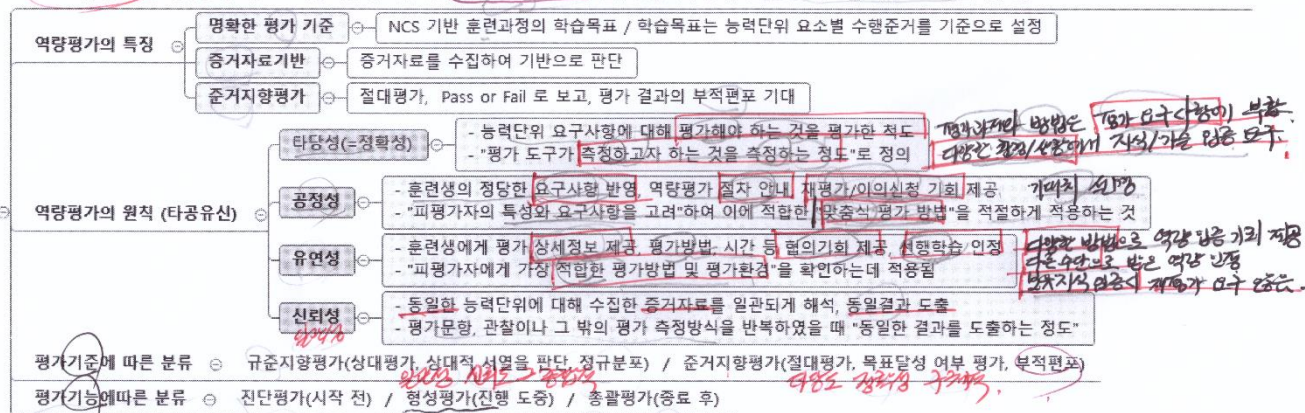 역량평가의 특징
명확한 평가 기준
NCS 기반 훈련과정의 학습목표 / 학습목표는 능력단위 요소별 수행준거를 기준으로 설정
증거자료기반
증거자료를 수집하여 기반으로 판단
준거지향평가
절대평가, Pass or Fail 로 보고, 평가 결과의 부적편포 기대
역량평가의 원칙 (타공유신)
타당성(=정확성)
- 능력단위 요구사항에 대해 평가해야 하는 것을 평가한 척도
- "평가 도구가 측정하고자 하는 것을 측정하는 정도"로 정의
평가과제와 방법은 평가 요구사항에 부합.
다양한 환경/상황에서 지식/기술 입증 요구.
공정성
- 훈련생의 정당한 요구사항 반영, 역량평가 절차 안내, 재평가/이의신청 기회 제공
기대치 설명
- "피평가자의 특성와 요구사항을 고려"하여 이에 적합한 "맞춤식 평가 방법"을 적절하게 적용하는 것
유연성
- 훈련생에게 평가 상세정보 제공, 평가방법, 시간 등 협의기회 제공, 선행학습 인정
- "피평가자에게 가장 적합한 평가방법 및 평가환경"을 확인하는데 적용됨
다양한 방법으로 역량 입증 기회 제공
다른 수단으로 받은 역량 인정
재평가 요구
신뢰성
- 동일한 능력단위에 대해 수집한 증거자료를 일관되게 해석, 동일결과 도출
- 평가문항, 관찰이나 그 밖의 평가 측정방식을 반복하였을 때 "동일한 결과를 도출하는 정도"
평가기준에 따른 분류
규준지향평가(상대평가, 상대적 서열을 판단, 정규분포) / 준거지향평가(절대평가, 목표달성 여부 평가, 부적편포)
평가기능에따른 분류
진단평가(시작 전) / 형성평가(진행 도중) / 총괄평가(종료 후)